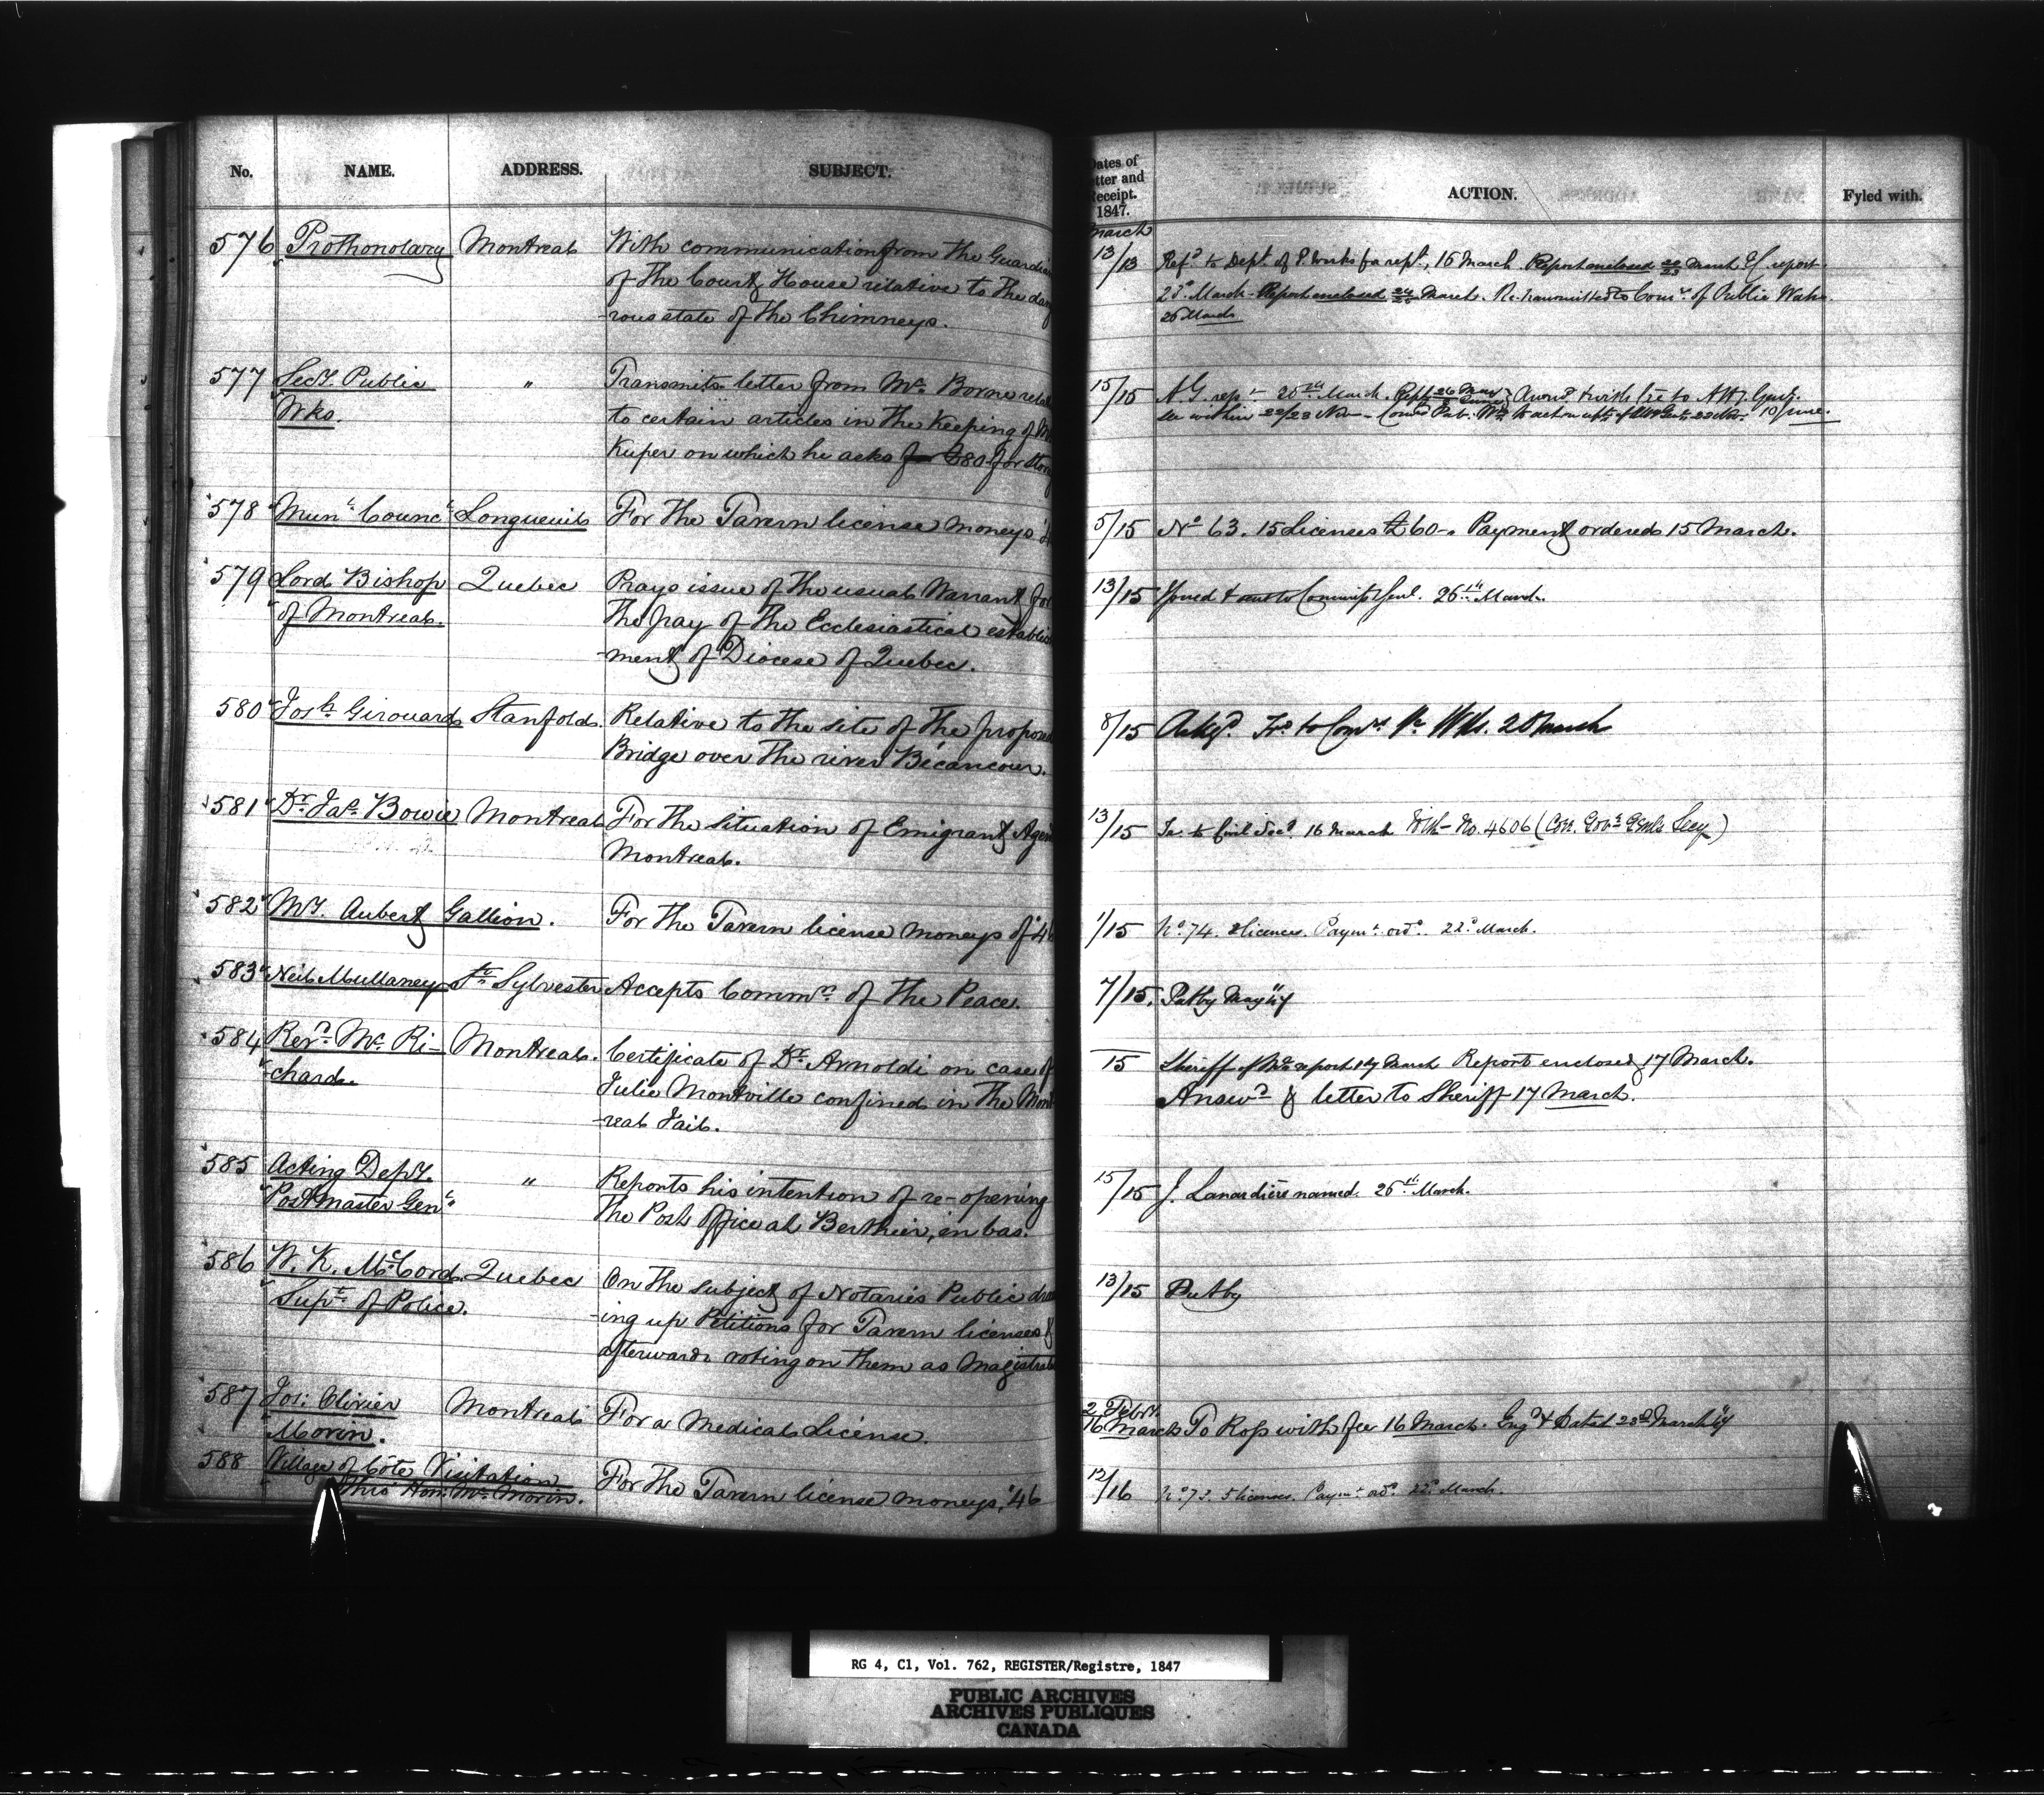 No. NAME. ADDRESS. SUBJECT.
576 Prothonotary Montreal With communication from the Guardian
of the Court House relative to the dang
-rous state of the Chimneys.
577 Secy. Public " Transmits letter from Mr. Borne relat
Wks. to certain articles in the Keeping of Mr
Kuper on which he asks for £80 for stor
578 Munl. Councl. Longueuil For the Tavern license moneys '4
579 Lord Bishop Quebec Prays issue of the usual Warrant for
of Montreal. the pay of the Ecclesiastical establis
-ment of Diocese of Quebec.
580 Josh. Girouard Stanfold. Relative to the site of the propose
Bridge over the river Bécancour.
581 Dr. Jas. Bowie Montreal For the situation of Emigrant Agen
Montreal.
582 My. Aubert Gallion. For the Tavern license moneys of '46
583 Neil Mullaney St. Sylvester Accepts Commn. of the Peace.
584 Revd. Mr. Ri- Montreal. Certificate of Dr. Arnoldi on case of
-chard. Julie Montville confined in the Mont
-real Jail.
585 Acting Depy. " Reports his intention of re-opening
Postmaster Genl. the Post Office at Berthier, en bas.
586 W. K. McCord. Quebec On the subject of Notaries Public draw
Supt. of Police. -ing up Petitions for Tavern licenses &
afterwards voting on them as Magistrate
587 Jos: Olivier Montreal For a Medical License.
Morin.
588 Village of Côte Visitation For the Tavern license moneys, '46
Thro Hon: Mr. Morin.
Dates of
etter and
Receipt.
1847.
ACTION. Fyled with.
March
13/13 Refd. to Dept. of P. Works for rept., 15 March. Report enclosed 22/23 March &c report
23d. March. Report enclosed 24 March. Re-transmitted to Comrs. of Public Works.
25 March
15/15 A.G. rep. 20th March. to Atty. Genl.
see within 22/23 Nov 10 June.
5/15 No. 63. 15 Licenses £60-" Payment ordered 15 March.
13/15 Issued & sent to Commissy Genl. 26th. March.
8/15 Ackgd. to Comrs. P. Wks. 20 March
13/15 Tr. to Civil Secy. 16 March With No. 4606 (Civ. Govr. Genl's Secy)
1/15 No. 74. 2 licences. Paymt. ord. 22d. March.
7/15. Put by May
15 Sheriff of Ml. report 17 March Report enclosed 17 March.
Answd. & letter to Sheriff 17 March.
15/15 J. Lanardière named. 26th. March.
13/15 Put by
2 Feby.
16 March To Ross with fee 16 March. Engd. & dated 23d. March
12/16 No. 73. 5 licences. Paymt. ord. 22d. March.
RG 4, C1, Vol. 762, REGISTER/Registre, 1847
PUBLIC ARCHIVES
ARCHIVES PUBLIQUES
CANADA